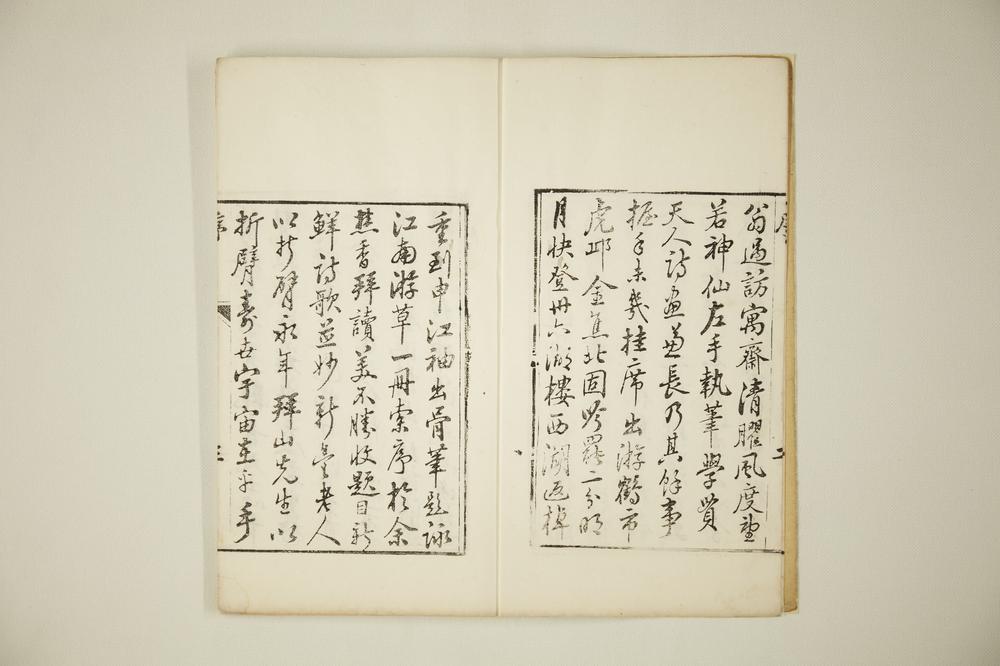 翁過訪寓齋清臞風度望
若神仙左手執筆學貫
天人詩畫兼長乃其餘事
握手未幾挂席出游鶴市
虎邱金焦北固
二分明
月快登卅六湖樓西湖返棹
重到申江袖出
筆題詠
江南游草一冊索序於余
焚香拜讀美不勝收題目新
鮮詩歌並妙新
老人
以折臂永年拜山先生以
折臂壽世宇宙在乎手
序
三